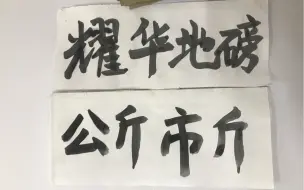 耀华地磅
公斤市斤